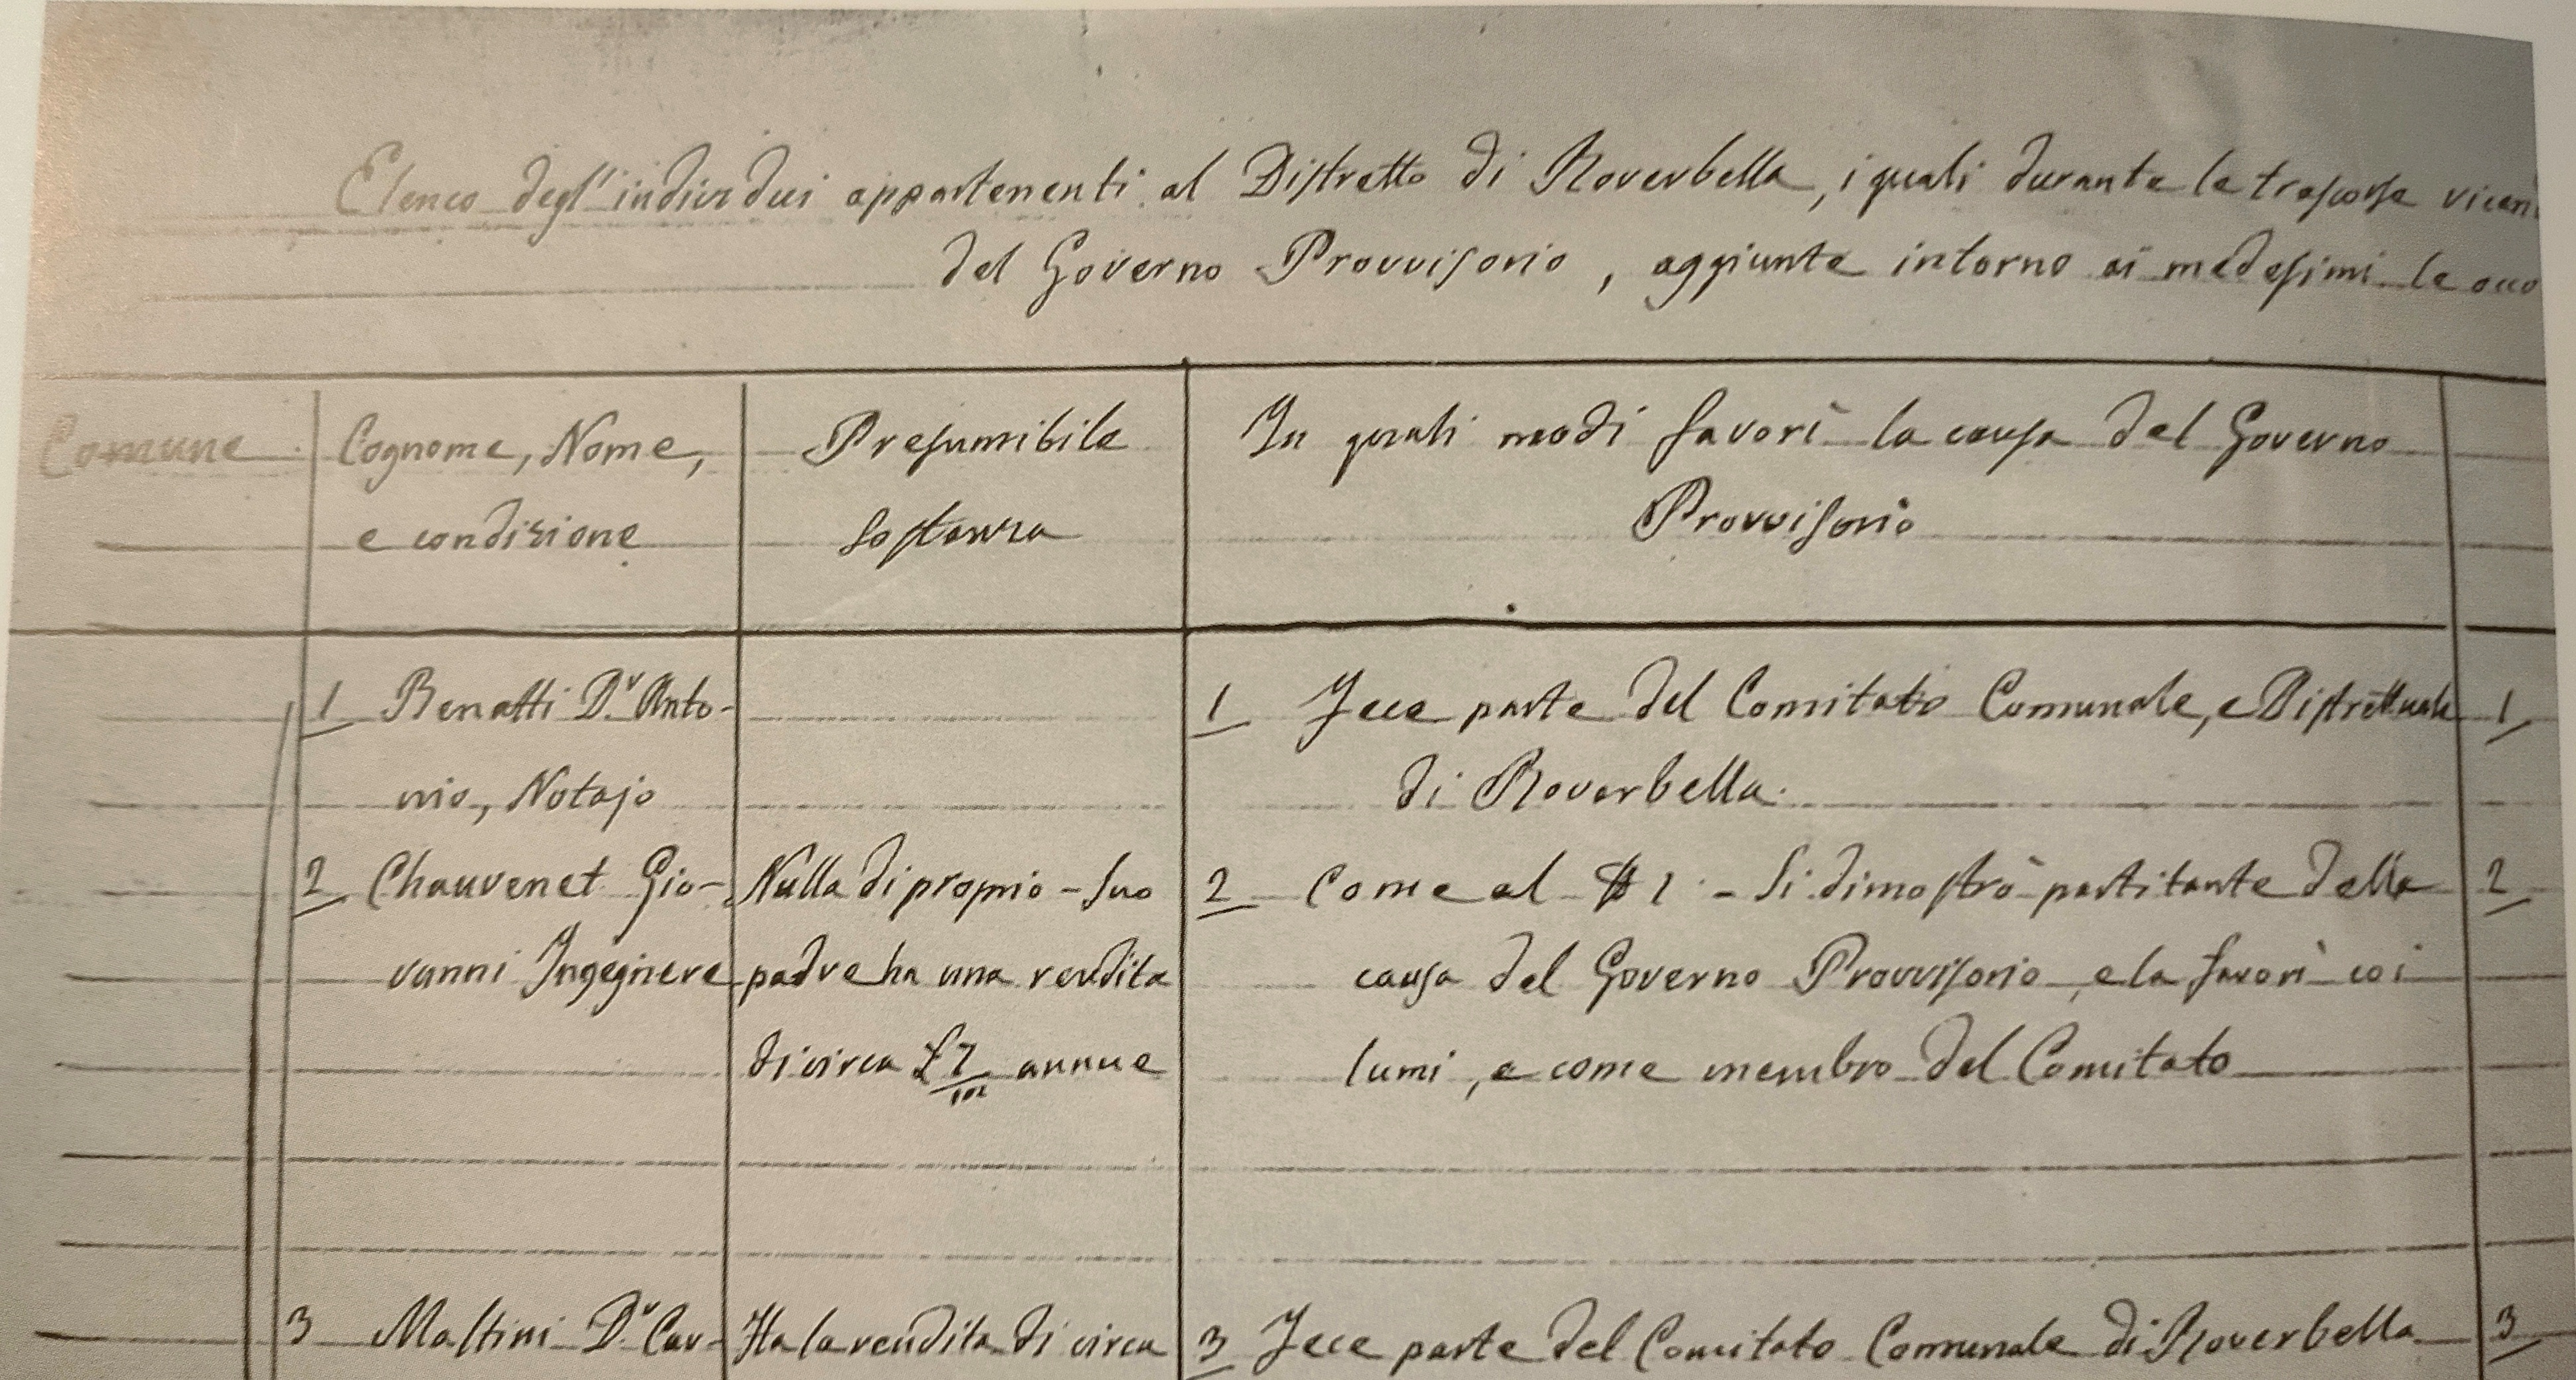 Elenco degl'individui appartenenti al Distretto di Roverbella, i quali durante le trascorse vicen
del Governo Provvisorio, aggiunte intorno ai medesimi le occo
Comune
Cognome, Nome,
e condizione
Presumibile
sostanza
In quali modi favorì la causa del Governo
Provvisorio
1 Benatti D.r Anto-
nio, Notajo
1 Fece parte del Comitato Comunale, e Distrettuale
di Roverbella.
1
2 Chauvenet Gio-
vanni Ingegnere
Nulla di proprio - Suo
padre ha una rendita
di circa £ 7/m annue
2 Come al # 1 - Si dimostrò partitante della
causa del Governo Provvisorio, e la favorì coi
lumi, e come membro del Comitato
2
3 Maltini D.r Car-
Ha la rendita di circa
3 Fece parte del Comitato Comunale di Roverbella
3